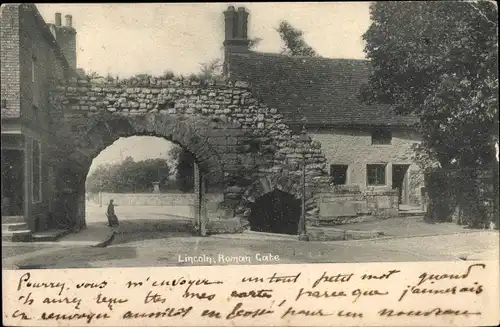 Lincoln, Roman Gate
Pourrez vous m'envoyer un tout petit mot quand
vous aurez reçu mes cartes parce que j'aimerais
en renvoyer aussitôt en Ecosse pour un nouveau